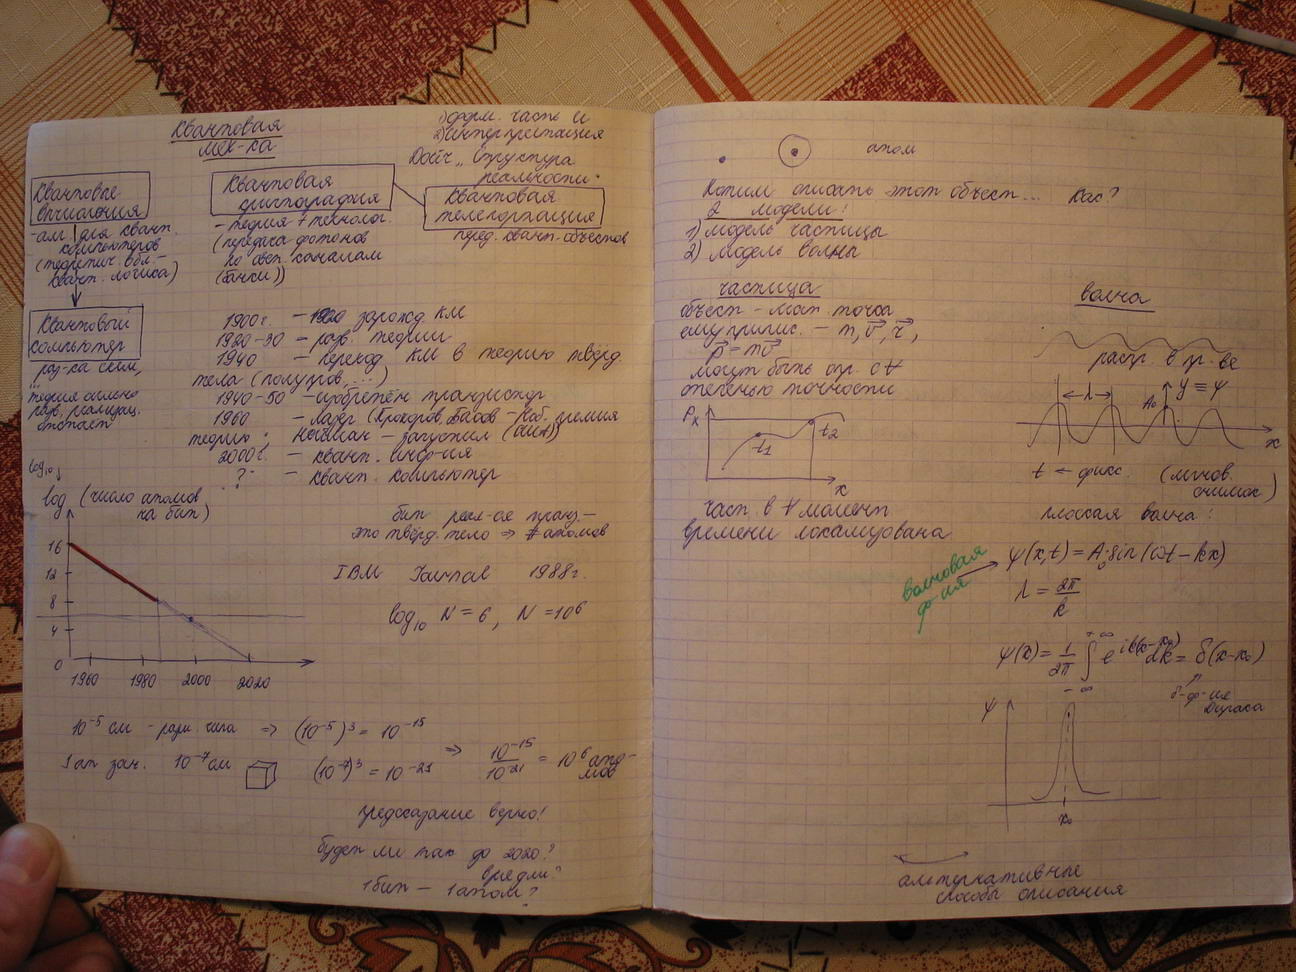 Квантовая
мех-ка
1) форм. часть и
2) интерпретация
Дойч „Структура
реальности"
Квантовые
вычисления
- алг. для квант.
компьютеров
(теоретич. обл. -
квант. логика)
Квантовая
криптография
- теория + технолог.
(передача фотонов
по опт. каналам
(банки))
Квантовая
телепортация
перед. квант. объектов
Квантовый
компьютер
раз-ка схем,
теория сильно
разв., реализац.
отстаёт
1900 г. - 1920 зарожд. КМ
1920-30 - разв. теории
1940 - переход КМ в теорию твёрд.
тела (полупров., ...)
1940-50 - изобретён транзистор
1960 - лазер (Прохоров, Басов - Ноб. премия
теорию; Нейман - запустил
2000 г. - квант. инф-ия
? - квант. компьютер
log₁₀
log (число атомов
на бит)
16
12
8
4
0
1960 1980 2000 2020
бит реал-ся транз. -
это твёрд. тело ⇒ # атомов
IBM Journal 1988 г.
log₁₀ N = 6, N = 10⁶
10⁻⁵ см - разм. чипа ⇒ (10⁻⁵)³ = 10⁻¹⁵
1 ат. зан. 10⁻⁷ см (10⁻⁷)³ = 10⁻²¹ ⇒ 10⁻¹⁵/10⁻²¹ = 10⁶ ато-
мов
предсказание верно!
будет ли так до 2020?
врядли?
1 бит - 1 атом?
атом
Хотим описать этот объект... Как?
2 модели:
1) модель частицы
2) модель волны
частица
объект - мат. точка
ему припис. - m, v⃗, r⃗,
p⃗ = mv⃗
могут быть опр. с ∀
степенью точности
Pₓ
t₁
t₂
x
част. в ∀ момент
времени локализована
волна
распр. в пр-ве
λ
A₀
y ≡ ψ
x
t ← фикс. (мгнов.
снимок)
плоская волна:
волновая
ф-ия
ψ(x,t) = A₀ sin(ωt - kx)
λ = 2π/k
ψ(x) = 1/2π ∫₋∞⁺∞ e^{ik(x-x₀)} dk = δ(x-x₀)
δ-ф-ия
Дирака
ψ
x₀
альтернативные
способы описания